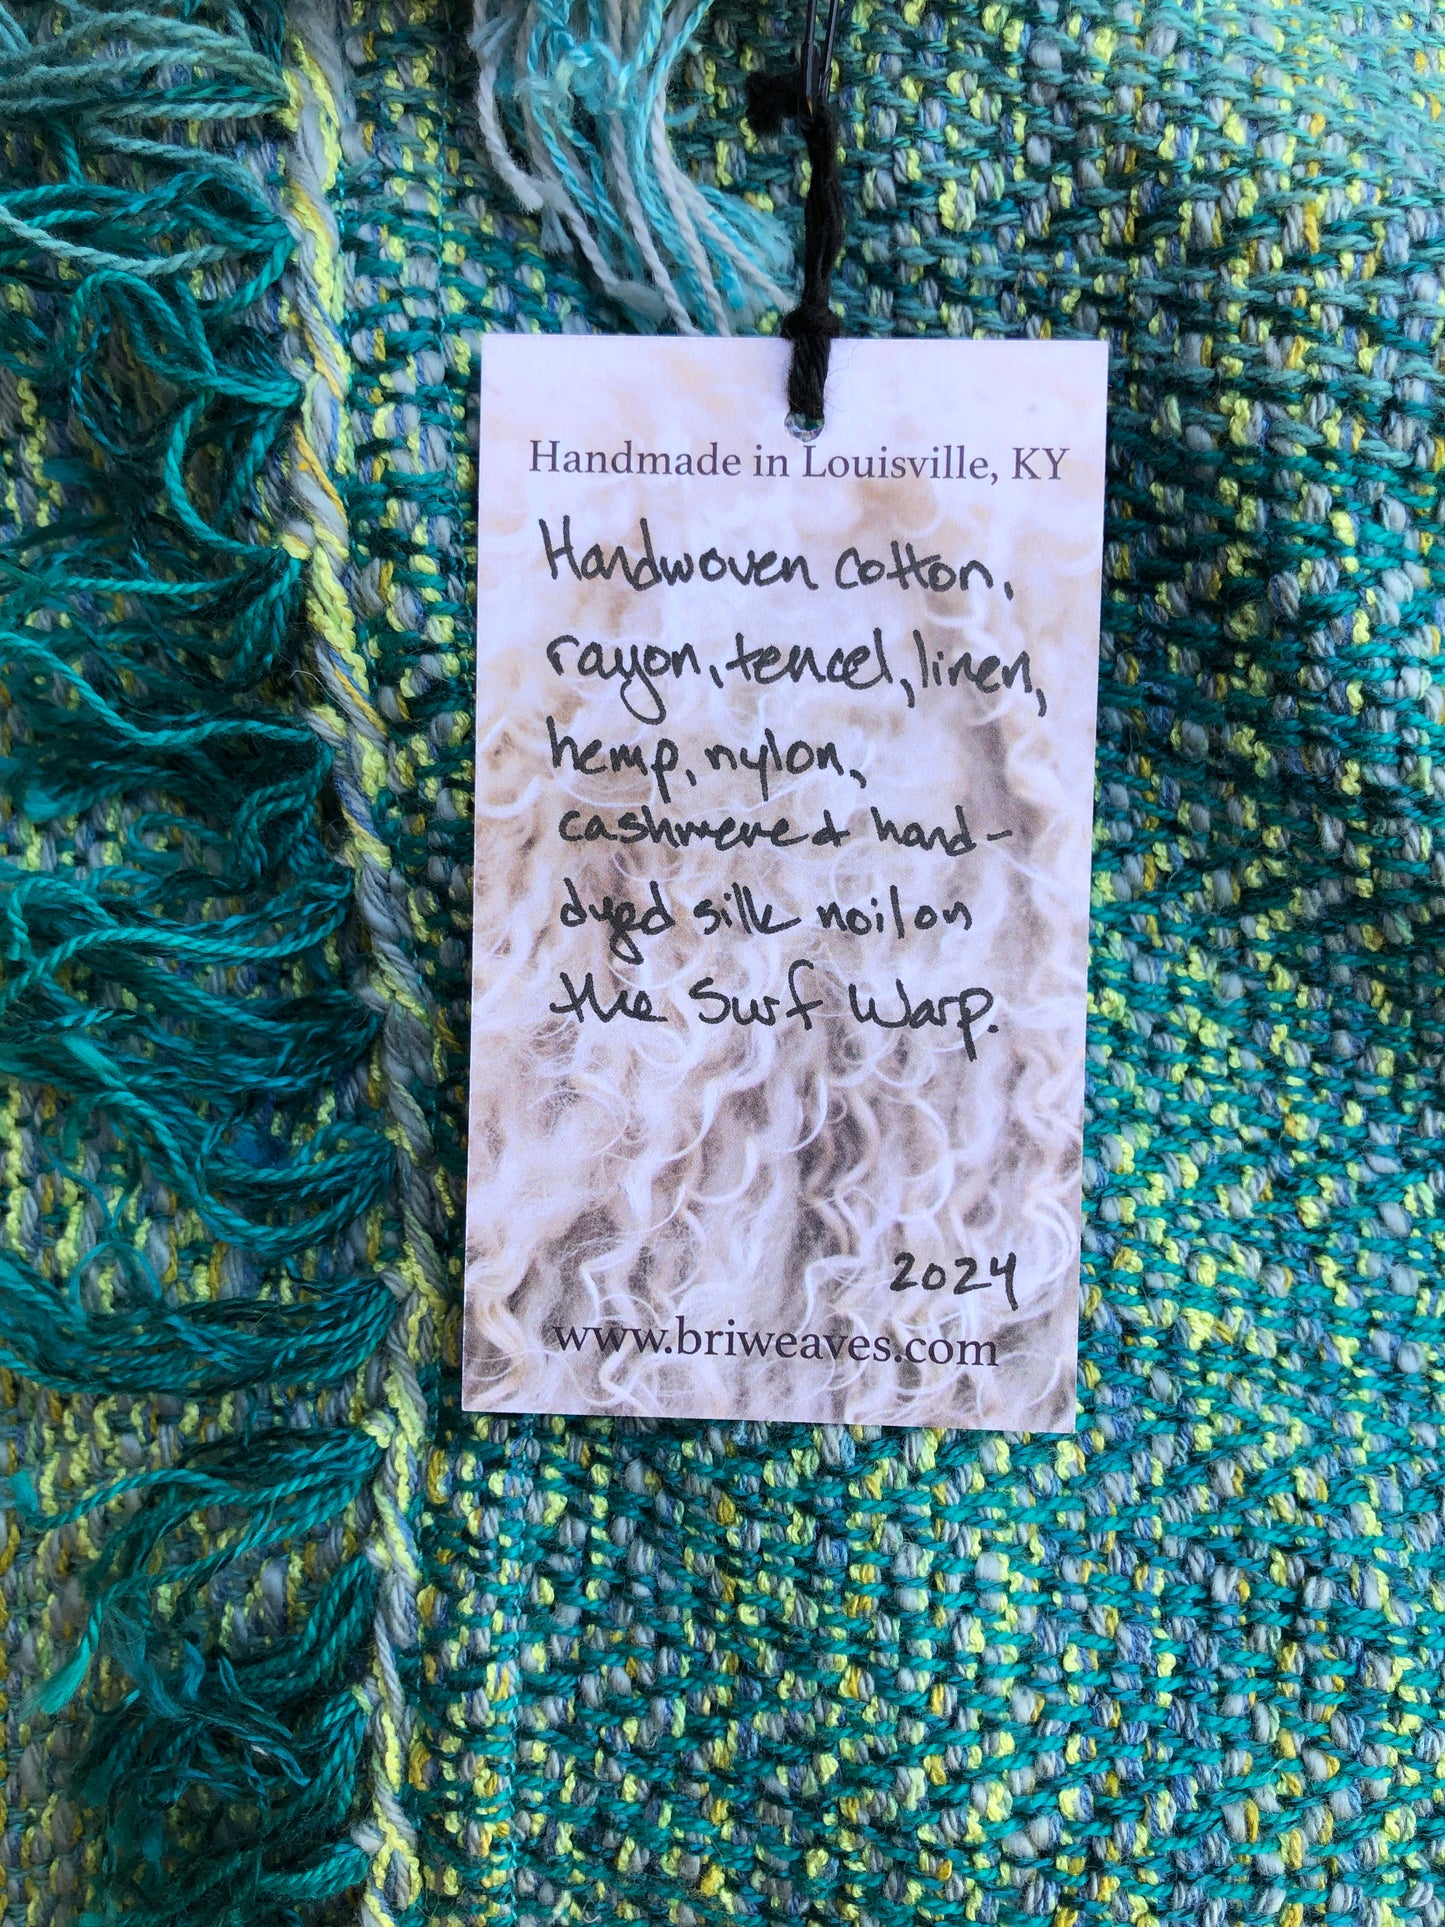 Handmade in Louisville, KY
Handwoven cotton,
rayon, tencel, linen,
hemp, nylon,
cashmere & hand-
dyed silk noil on
the Surf Warp.
2024
www.briweaves.com